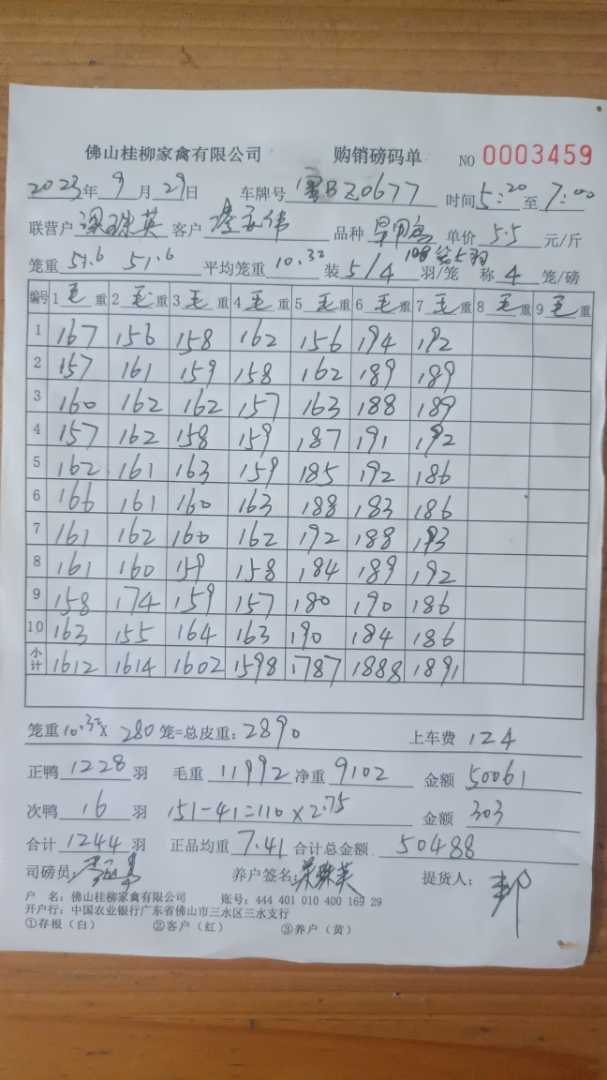 佛山桂柳家禽有限公司 购销磅码单 NO 0003459
2023年 9月 29日 车牌号 粤BZ0677 时间 5:20 至 7:00
联营户 梁珠英 客户 伟 品种 单价 5.5 元/斤
笼重 51.6 51.6 平均笼重 10.32 装 5/4 羽/笼 称 4 笼/磅
编号 1 毛重 2 毛重 3 毛重 4 毛重 5 毛重 6 毛重 7 毛重 8 毛重 9 毛重
1 167 156 158 162 156 194 192
2 157 161 159 158 162 189 189
3 160 162 162 157 163 188 189
4 157 162 158 159 187 191 192
5 162 161 163 159 185 192 186
6 166 161 160 163 188 183 186
7 161 162 160 162 192 188 193
8 161 160 159 158 184 189 192
9 158 174 159 157 180 190 186
10 163 155 164 163 190 184 186
小计 1612 1614 1602 1598 1787 1888 1891
笼重 10.32 x 280 笼=总皮重: 2890 上车费 124
正鸭 1228 羽 毛重 11992 净重 9102 金额 50061
次鸭 16 羽 151-41=110×2.75 金额 303
合计 1244 羽 正品均重 7.41 合计总金额 50488
司磅员: 养户签名: 提货人:
户 名: 佛山桂柳家禽有限公司 账号: 444 401 010 400 169 29
开户行: 中国农业银行广东省佛山市三水区三水支行
①存根（白） ②客户（红） ③养户（黄）